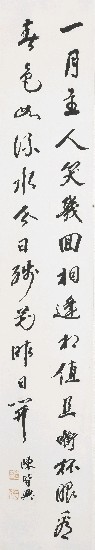 一月主人笑幾回相逢相值且銜杯眼看
春色如流水今日殘花昨日開
陳